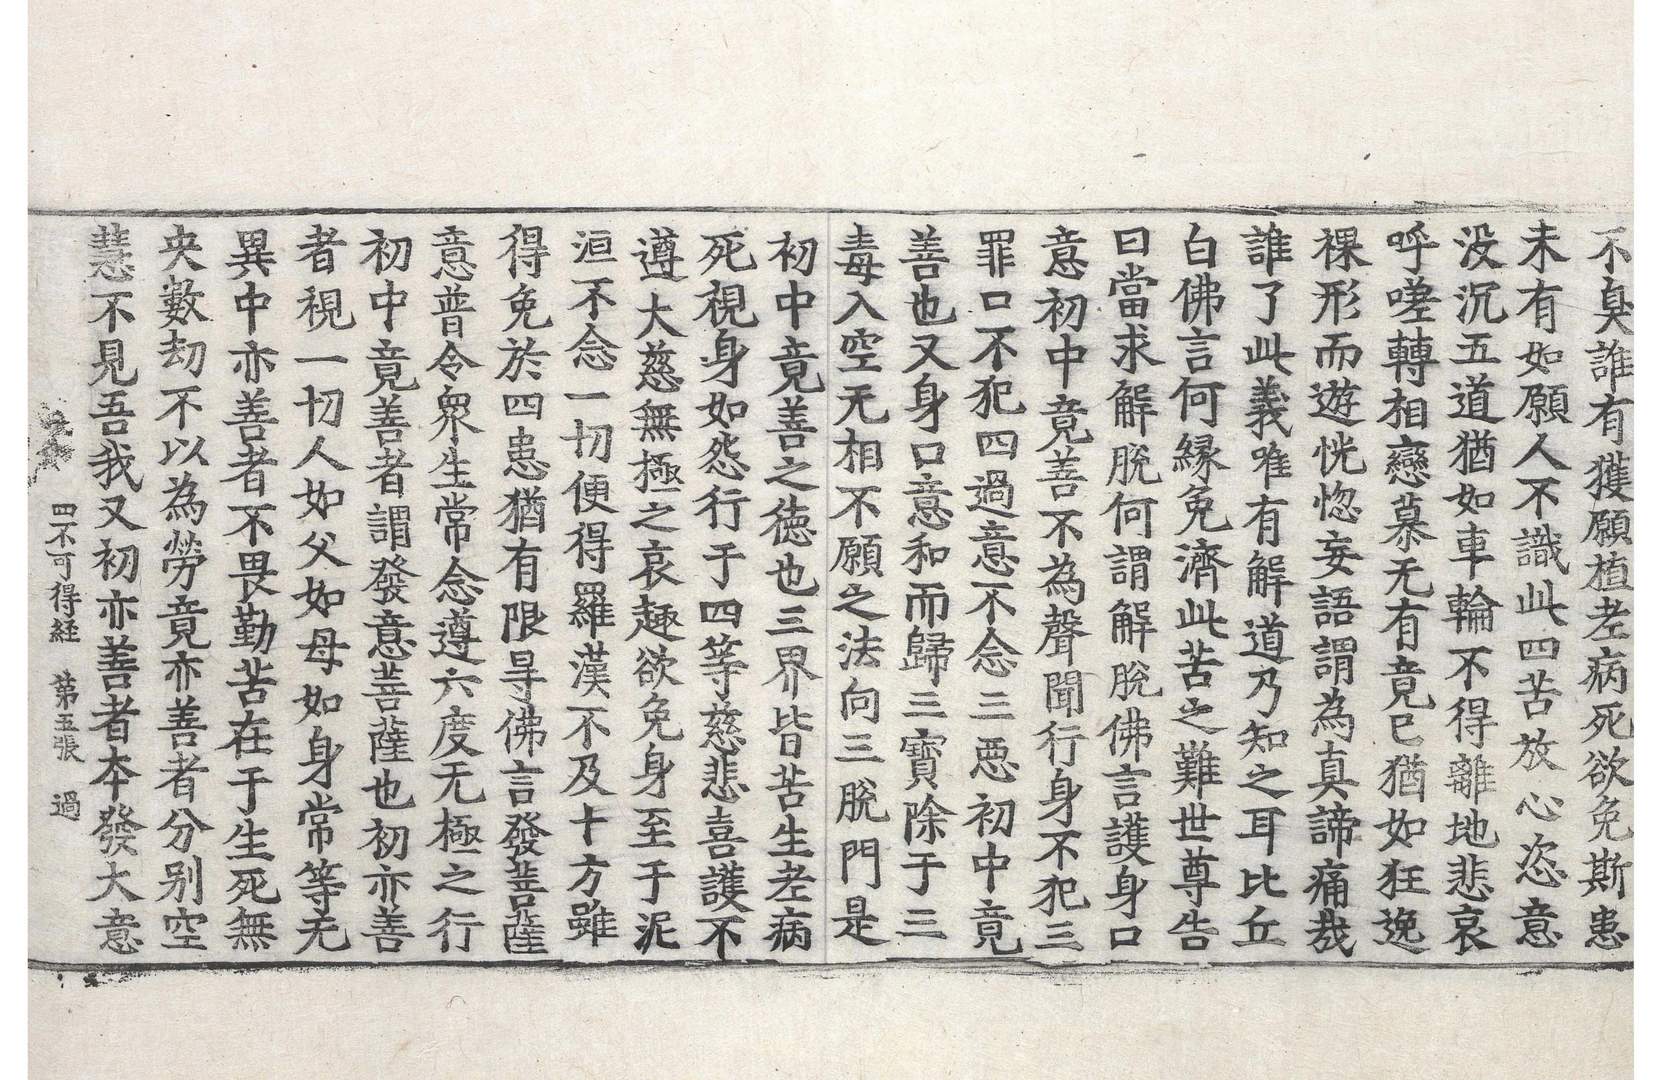 不臭誰有獲願植老病死欲免斯患
未有如願人不識此四苦放心恣意
没沉五道猶如車輪不得離地悲哀
呼嗟轉相戀慕无有竟已猶如狂逸
裸形而遊恍惚妄語謂為真諦痛哉
誰了此義唯有解道乃知之耳比丘
白佛言何縁免濟此苦之難世尊告
曰當求解脫何謂解脫佛言護身口
意初中竟善不為聲聞行身不犯三
罪口不犯四過意不念三惡初中竟
善也又身口意和而歸三寶除于三
毒入空无相不願之法向三脫門是
初中竟善之徳也三界皆苦生老病
死視身如怨行于四等慈悲喜護不
遵大慈無極之哀趣欲免身至于泥
洹不念一切便得羅漢不及十方雖
得免於四患猶有限㝵佛言發菩薩
意普令衆生常念遵六度无極之行
初中竟善者謂發意菩薩也初亦善
者視一切人如父如母如身常等无
異中亦善者不畏勤苦在于生死無
央數劫不以為勞竟亦善者分别空
慧不見吾我又初亦善者本發大意
四不可得経 第五張 過